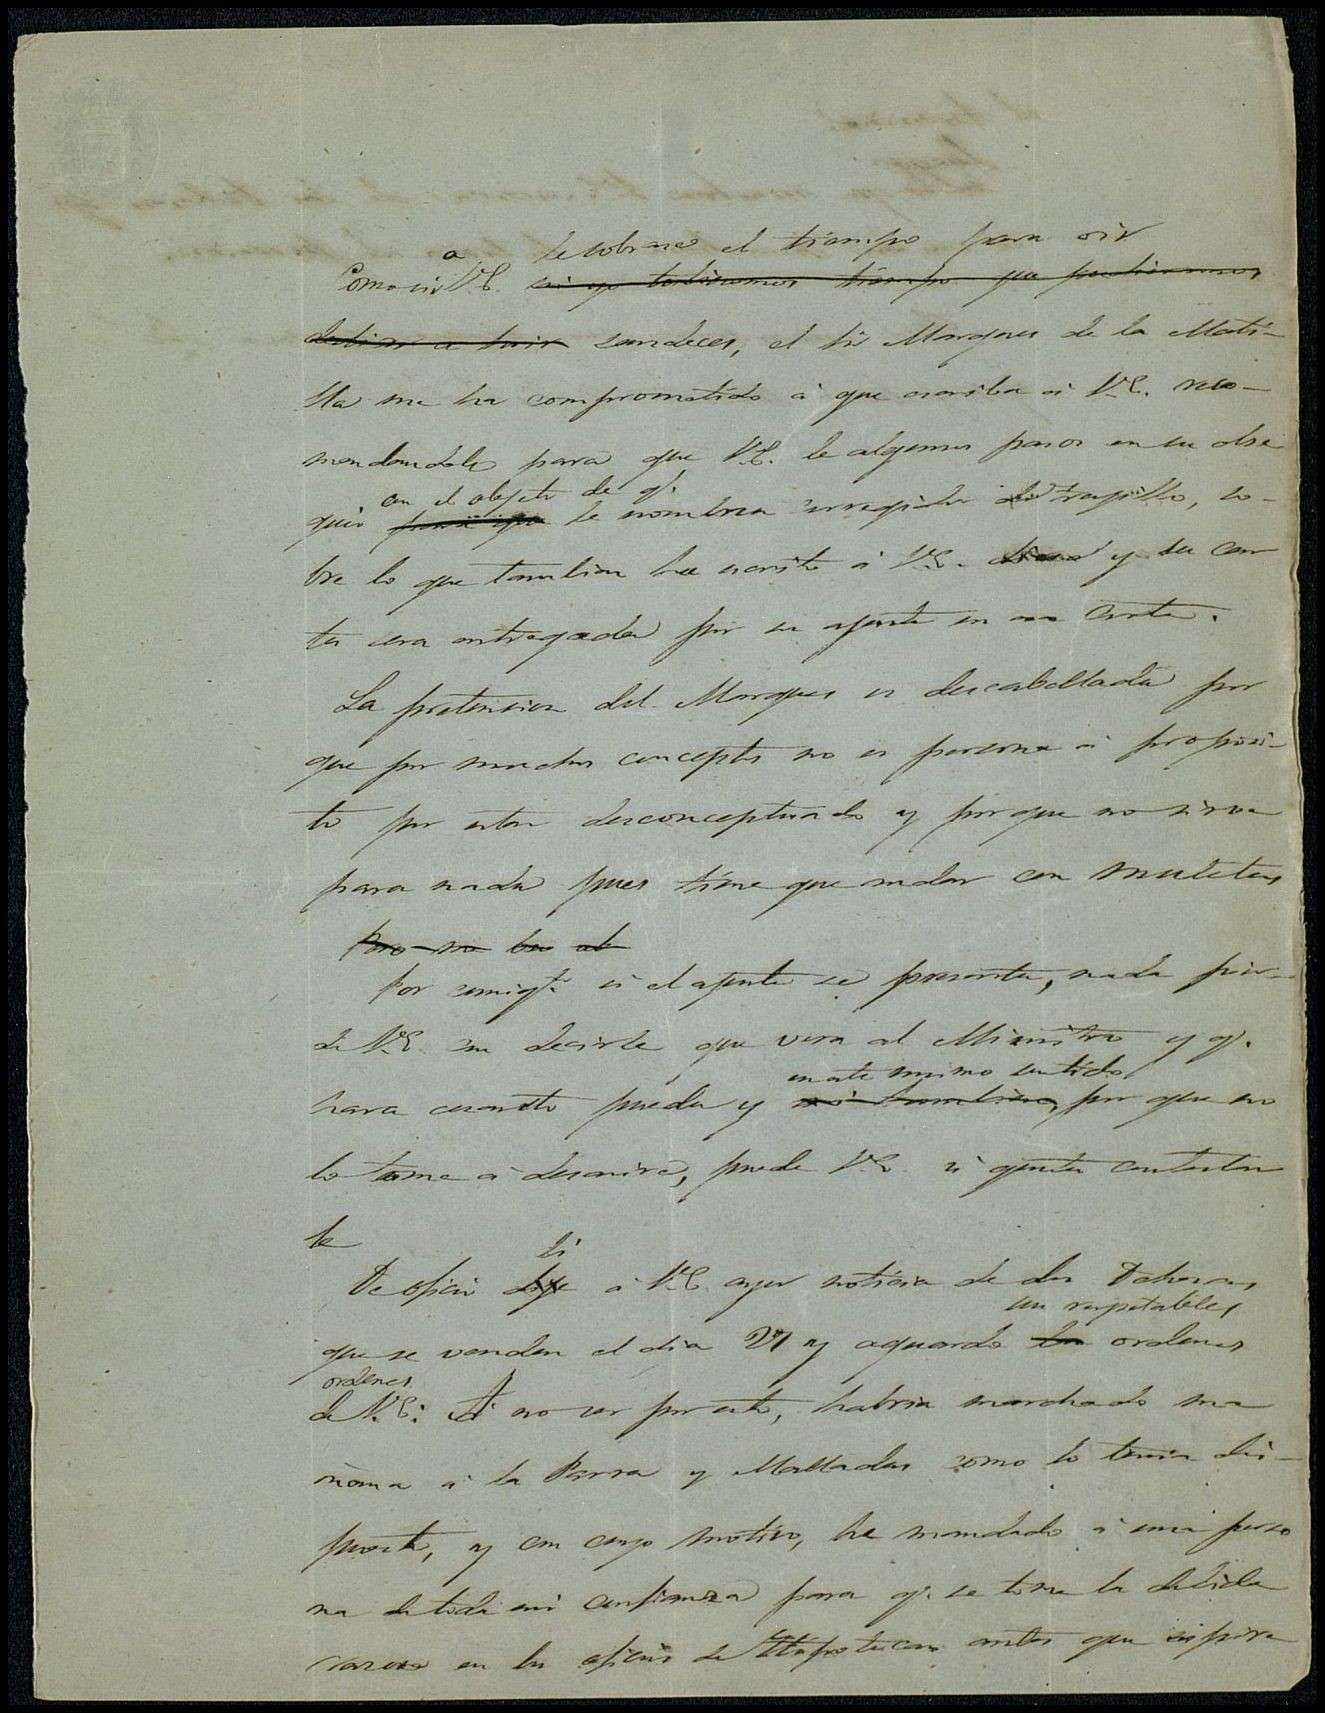 a le sobrase el tiempo para oir
Como si V.E. si yo tubieramos tiempo que pudieramos
dedicar a oir sandeces, el Sr Marques de la Mati-
lla me ha comprometido á que escriba á V.E. reco-
mendandole para que V.E. de algunos pasos en su obse
con el objeto de q.
quio para que le nombren corregidor de Trugillo, so-
bre lo que tambien ha escrito á V.E. y su car
ta sera entregada por su agente en esa Corte.
La pretension del Marques es descabellada por
que por muchos conceptos no es persona á proposi-
to por estar desconceptuado y porque no sirve
para nada pues tiene que andar con muletas
Pero no
Por consig.te si el agente se presenta, nada pier-
de V.E. en decirle que vera al Ministro y q.
en este mismo sentido
hara cuanto pueda y asi tambien, por que no
lo tome á desaire, puede V.E. si gusta contestar
le
di
De oficio dije á V.E. ayer noticia de las Dehesas,
sus respetables
que se venden el dia 27 y aguardo las ordenes
ordenes
de V.E. A no ser por esto, habria marchado ma
ñana á la Parra y Malladas como lo tenia dis-
puesto, y con cuyo motivo, he mandado á una perso
na de toda mi confianza para q. se tome la debida
razon en la oficina de Hipotecas antes que espire